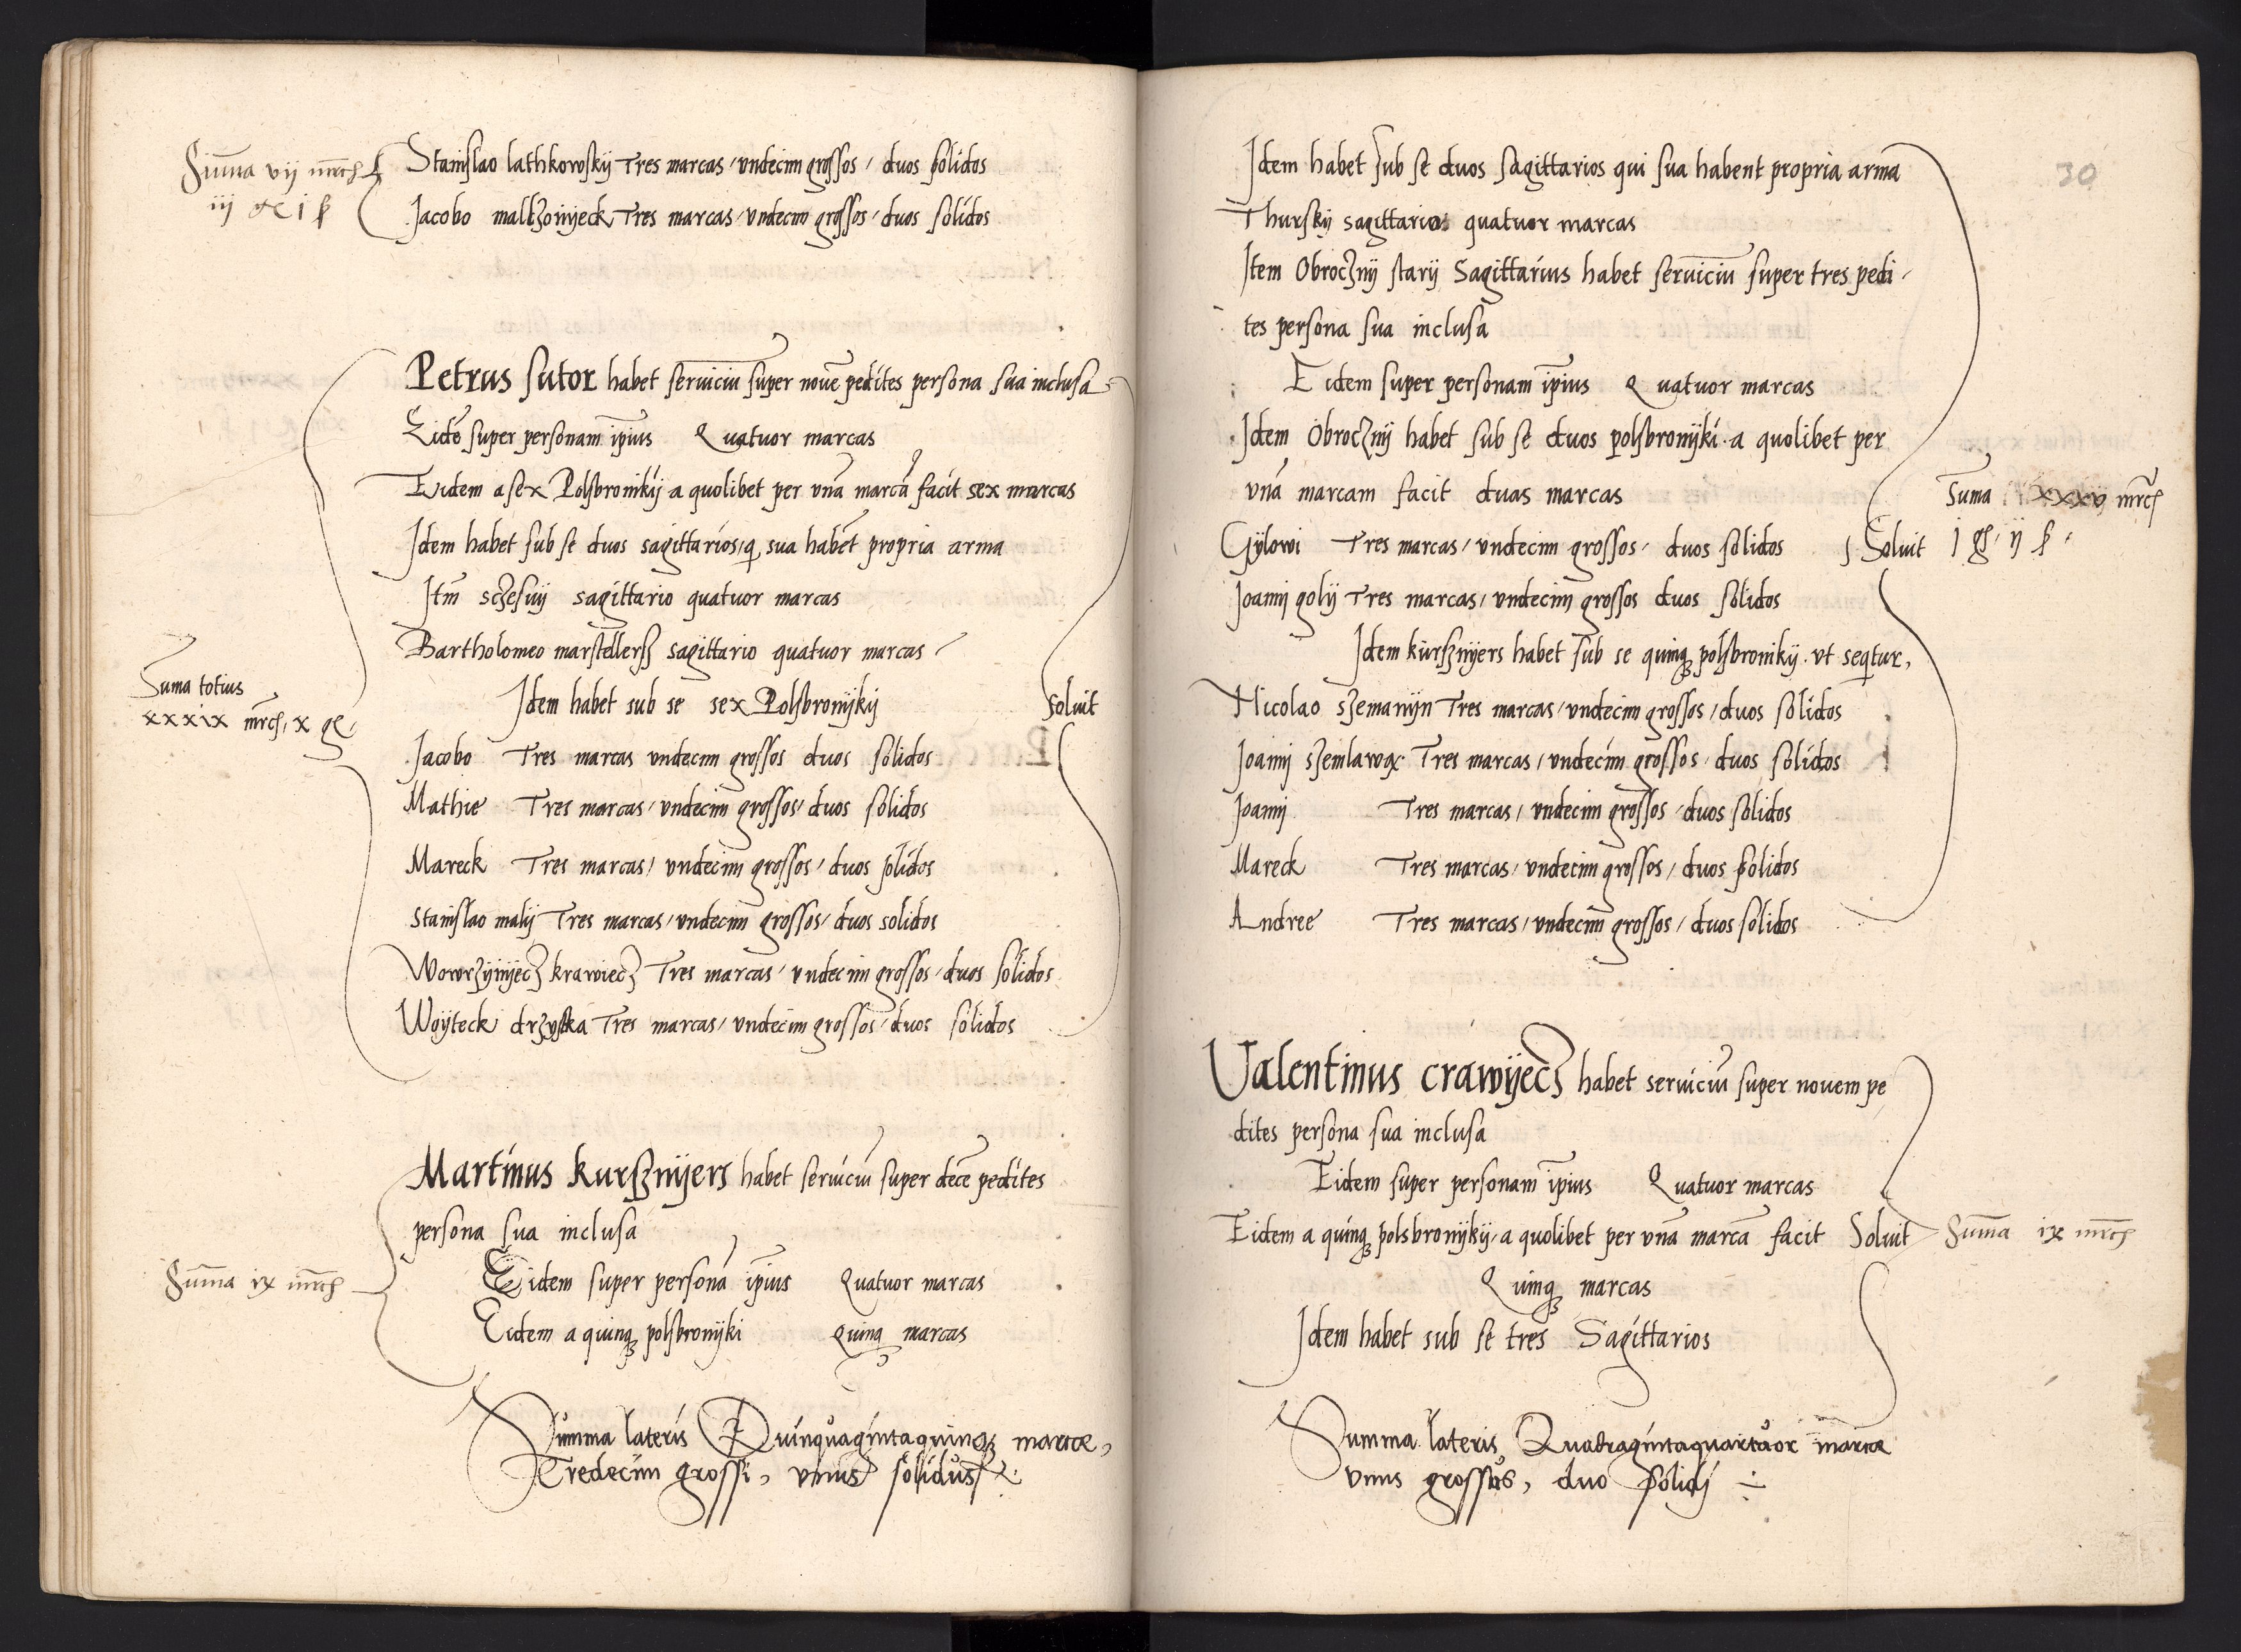 Stanislao lathkowskÿ Tres marcas / vndecim grossos / duos solidos
Sum̄a vij mrc̄
iij gr j ß
Jacobo maltzonÿeck Tres marcas / vndecim grossos / duos solidos
Petrus sutor habet seruiciū super nouē pedites persona sua inclusa
Eidē super personam ip̄ius Quatuor marcas
Eidem a sex Polsbronikÿ a quolibet per vnā marcā facit sex marcas
Idem habet sub se duos sagittarios, q sua habēt propria arma
Itm̄ sczesnÿ sagittario quatuor marcas
Bartholomeo marstellersz sagittario quatuor marcas
Idem habet sub se sex Polsbronÿkÿ
Soluit
Suma totius
xxxix mrc, x gr
Jacobo Tres marcas vndecim grossos duos solidos
Mathie Tres marcas / vndecim grossos / duos solidos
Mareck Tres marcas / vndecim grossos / duos solidos
Stanislao malÿ Tres marcas / vndecim grossos / duos solidos
Wowrzÿnÿecz krawiecz Tres marcas / vndecim grossos / duos solidos
Woÿteck drzystka Tres marcas / vndecim grossos / duos solidos
Martinus kurßnÿers habet seruiciū super decē pedites
persona sua inclusa
Eidem super personā ip̄ius Quatuor marcas
Sum̄a ix mrc̄
Eidem a quinqꝫ polsbronÿki quinqꝫ marcas
Summa lateris Quinquagintaquinqꝫ marcæ,
Tredecim grossi, vnus solidus
30
Idem habet sub se duos sagittarios qui sua habent propria arma
Thurskÿ sagittarios quatuor marcas
Item Obrocznÿ starÿ Sagittarius habet seruiciū super tres pedi
tes persona sua inclusa
Eidem super personam ip̄ius Quatuor marcas
Idem Obrocznÿ habet sub se duos polsbronÿki a quolibet per
vnā marcam facit duas marcas
Suma xxxv mrc̄
j gr ij ß
Gÿlowi Tres marcas / vndecim grossos / duos solidos Soluit
Joannj golÿ Tres marcas / vndecim grossos duos solidos
Idem kurßnÿers habet sub se quinqꝫ polsbronikÿ vt seqtur,
Nicolao szemanÿn Tres marcas / vndecim grossos / duos solidos
Joannj Tres marcas / vndecim grossos / duos solidos
Joannj Tres marcas / vndecim grossos / duos solidos
Mareck Tres marcas / vndecim grossos / duos solidos
Andree Tres marcas / vndecim grossos / duos solidos
Valentinus crawÿecz habet seruiciū super nouem pe
dites persona sua inclusa
Eidem super personam ip̄ius Quatuor marcas
Eidem a quinqꝫ polsbronÿkÿ, a quolibet per vnā marcā facit Soluit Sum̄a ix mrc̄
Quinqꝫ marcas
Idem habet sub se tres Sagittarios
Summa lateris Quadragintaquatuor marcæ
vnus grossus, duo solidj